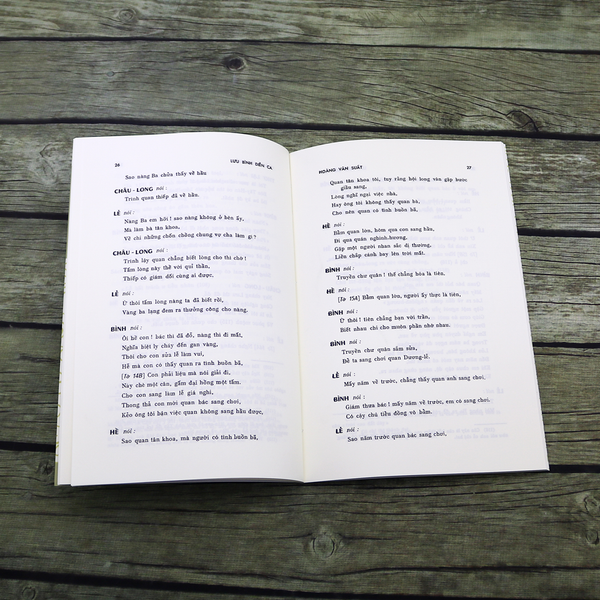 26
LƯU BÌNH DIỄN CA
Sao nàng Ba chửa thấy về hầu
CHÂU-LONG nói :
Trình quan thiếp đã về hầu.
LỄ nói :
Nàng Ba em hỡi ! sao nàng không ở bên ấy,
Mà làm bà tân khoa,
Về chi những chốn chồng chung vợ chạ làm gì ?
CHÂU-LONG nói :
Trình lạy quan chẳng biết lòng cho thì chớ !
Tấm lòng này thề với quỉ thần,
Thiếp có giám đối cùng ai được.
LỄ nói :
Ừ thôi tấm lòng nàng ta đã biết rồi,
Vàng ba lạng đem ra thưởng công cho nàng.
BÌNH nói :
Ối hề con ! bác thì đã đỗ, nàng thì đi mất,
Nghĩa biệt ly chày đến gan vàng,
Thôi cho con sửa lễ làm vui,
Hề mà con có thấy quan ra tình buồn bã,
[Tờ 14B] Con phải liệu mà nói giải đi,
Này chè một cân, gấm đại hồng một tấm.
Cho con sang làm lễ giả nghì,
Thong thả con mời quan bác sang chơi,
Kẻo ông tôi bận việc quan không sang hầu được,
HỀ nói :
Sao quan tân khoa, mà người có tình buồn bã,
HOÀNG VĂN SUẤT
27
Quan tân khoa tôi, tuy rằng hội long vân gặp bước
giầu sang,
Long nghĩ ngại việc nhà,
Hay ông tôi không thấy quan bà,
Cho nên quan có tình buồn bã,
HỀ nói :
Bẩm quan lớn, hôm qua con sang hầu,
Đi qua quán nghinh-hương,
Gặp một người nhan sắc dị thường,
Liền chắp cánh bay lên trời mất.
BÌNH nói :
Truyền chư quân ! thế chẳng hóa là tiên,
HỀ nói :
[Tờ 15A] Bẩm quan lớn, người ấy thực là tiên,
BÌNH nói :
Ừ thôi ! tiên chẳng bạn với trần,
Biết nhau chi cho muôn phần nhớ nhau.
BÌNH nói :
Truyền chư quân sắm sửa,
Để ta sang chơi quan Dương-lễ.
LỄ nói :
Mấy năm về trước, chẳng thấy quan anh sang chơi,
BÌNH nói :
Giám thưa bác ! mấy năm về trước, em có sang chơi,
Có cậy chú tiểu đồng vô bẩm.
LỄ nói :
Sao năm trước quan bác sang chơi,